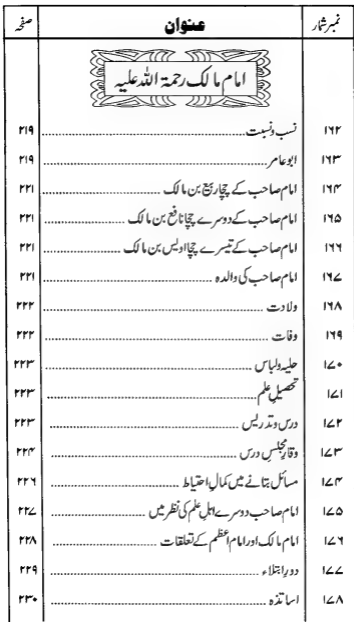 نمبر شمار عنوان صفحہ
امام مالک رحمۃ اللہ علیہ
۱۶۲ نسب و نسبت ۲۱۹
۱۶۳ ابو عامر ۲۱۹
۱۶۴ امام صاحب کے چچا ربیع بن مالک ۲۲۱
۱۶۵ امام صاحب کے دوسرے چچا نافع بن مالک ۲۲۱
۱۶۶ امام صاحب کے تیسرے چچا اویس بن مالک ۲۲۱
۱۶۷ امام صاحب کی والدہ ۲۲۱
۱۶۸ ولادت ۲۲۲
۱۶۹ وفات ۲۲۲
۱۷۰ حلیہ و لباس ۲۲۳
۱۷۱ تحصیلِ علم ۲۲۳
۱۷۲ درس و تدریس ۲۲۳
۱۷۳ وقارِ مجلسِ درس ۲۲۴
۱۷۴ مسائل بتانے میں کمالِ احتیاط ۲۲۶
۱۷۵ امام صاحب دوسرے اہلِ علم کی نظر میں ۲۲۷
۱۷۶ امام مالک اور امام اعظم کے تعلقات ۲۲۸
۱۷۷ دورِ ابتلاء ۲۲۹
۱۷۸ اساتذہ ۲۳۰